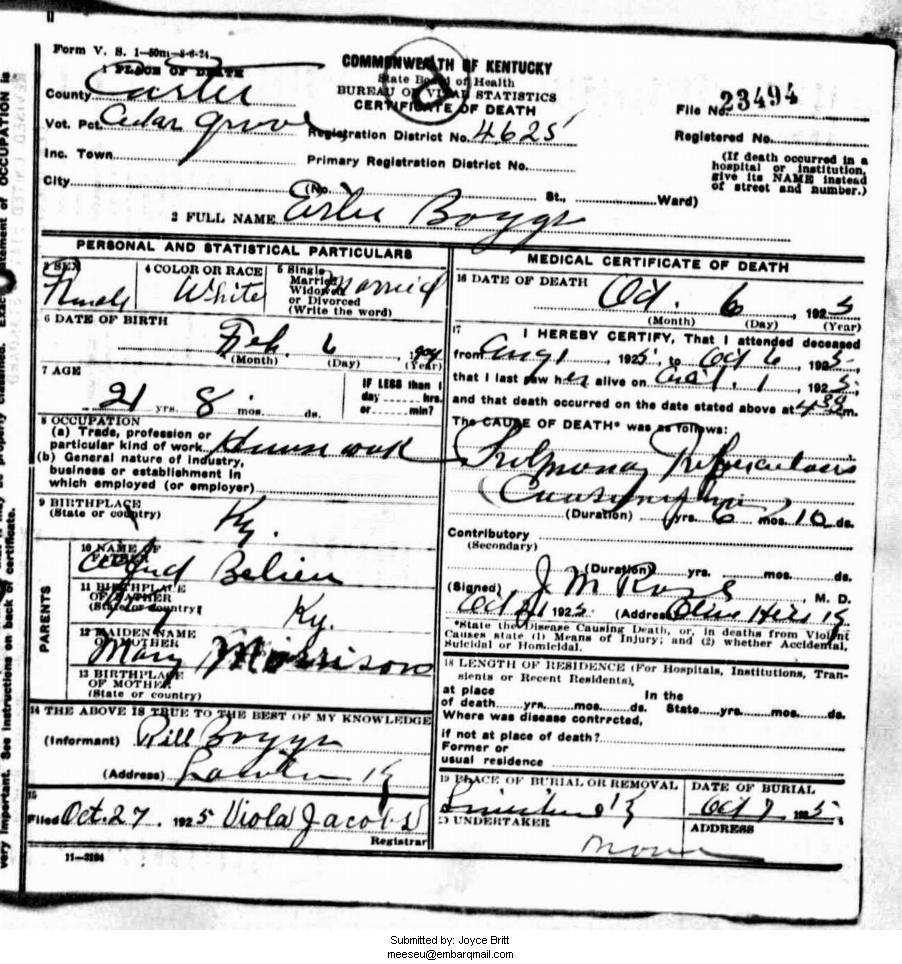 Form V. S. 1—50m—8-6-24
1 PLACE OF DEATH
COMMONWEALTH OF KENTUCKY
State Board of Health
BUREAU OF VITAL STATISTICS
CERTIFICATE OF DEATH
County Carter
File No. 23494
Vot. Pct. Cedar Grove
Registration District No. 4625
Registered No.
Inc. Town
Primary Registration District No.
(If death occurred in a hospital or institution, give its NAME instead of street and number.)
City
(No. St., Ward)
2 FULL NAME Boggs
PERSONAL AND STATISTICAL PARTICULARS
3 SEX Female
4 COLOR OR RACE White
5 Single Married Widowed or Divorced (Write the word) Married
6 DATE OF BIRTH
Feb. 6
(Month) (Day) (Year)
7 AGE
21 yrs. 8 mos. ds.
IF LESS than 1 day hrs. or min?
8 OCCUPATION
(a) Trade, profession or particular kind of work House work
(b) General nature of industry, business or establishment in which employed (or employer)
9 BIRTHPLACE
(State or country) Ky.
PARENTS
10 NAME OF FATHER
11 BIRTHPLACE OF FATHER
(State or country) Ky.
12 MAIDEN NAME OF MOTHER
Mary Morrison
13 BIRTHPLACE OF MOTHER
(State or country)
14 THE ABOVE IS TRUE TO THE BEST OF MY KNOWLEDGE
(Informant) Bill Boggs
(Address) Lawton Ky
15
Filed Oct. 27. 1925 Viola Jacobs
Registrar
11—3194
MEDICAL CERTIFICATE OF DEATH
16 DATE OF DEATH
Oct. 6, 1925
(Month) (Day) (Year)
17
I HEREBY CERTIFY, That I attended deceased
from Aug 1, 1925 to Oct 6, 1925
that I last saw her alive on 1, 1925
and that death occurred on the date stated above at 4 m.
The CAUSE OF DEATH* was as follows:
Pulmonary Tuberculosis
(Consumption)
(Duration) yrs. 6 mos. 10 ds.
Contributory
(Secondary)
(Duration) yrs. mos. ds.
(Signed) J M Rose, M. D.
Oct 1925 (Address) Olive Hill Ky
*State the Disease Causing Death, or, in deaths from Violent
Causes state (1) Means of Injury; and (2) whether Accidental,
Suicidal or Homicidal.
18 LENGTH OF RESIDENCE (For Hospitals, Institutions, Transients or Recent Residents),
at place of death yrs. mos. ds. In the State yrs. mos. ds.
Where was disease contracted,
if not at place of death?
Former or usual residence
19 PLACE OF BURIAL OR REMOVAL
DATE OF BURIAL
Oct 7 1925
20 UNDERTAKER
None
ADDRESS
Submitted by: Joyce Britt
meeseu@embarqmail.com